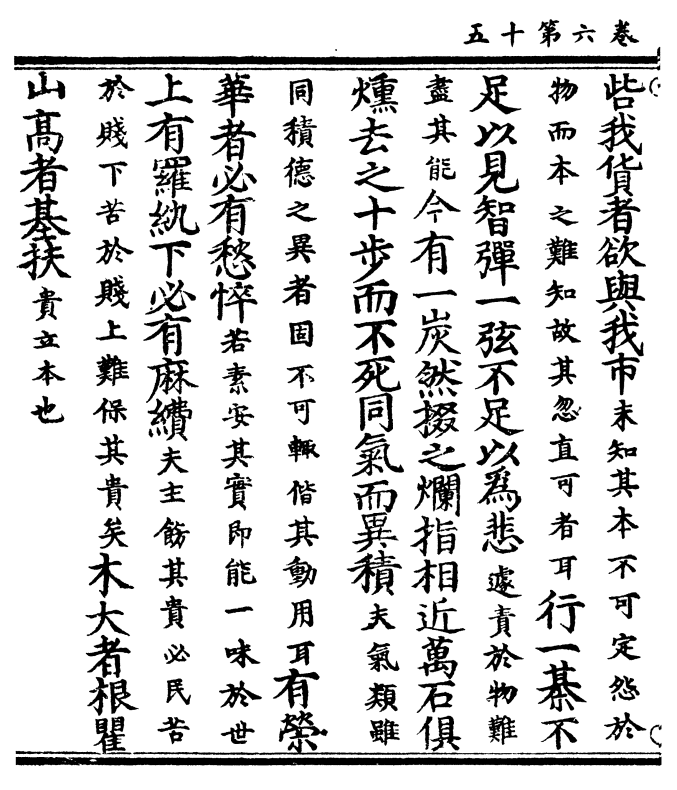 卷六第十五
呰我貨者欲與我市未知其本不可定怨於
物而本之難知故其忽直可者耳行一棊不
足以見智彈一弦不足以為悲遽責於物難
盡其能今有一炭然掇之爛指相近萬石俱
熏去之十步而不死同氣而異積夫氣類雖
同積德之異者固不可輒偕其動用耳有榮
華者必有愁悴若素安其實即能一味於世
上有羅紈下必有麻繢夫主飾其貴必民苦
於賤下苦於賤上難保其貴矣木大者根瞿
山高者基扶貴立本也